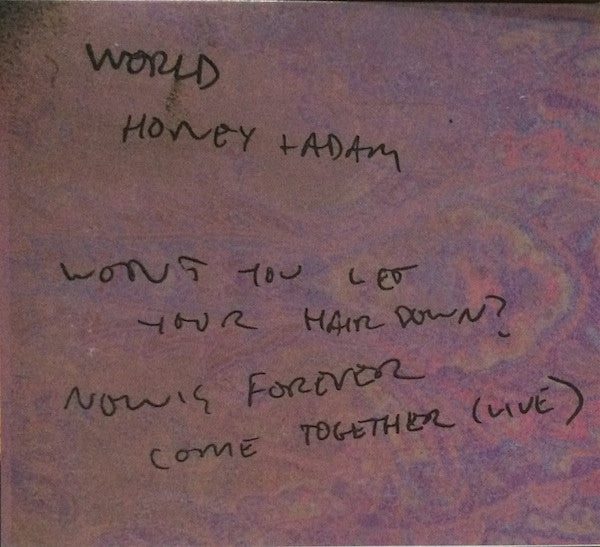 WORLD
HONEY + ADAM
WON'T YOU LET
YOUR HAIR DOWN?
NOW IS FOREVER
COME TOGETHER (LIVE)